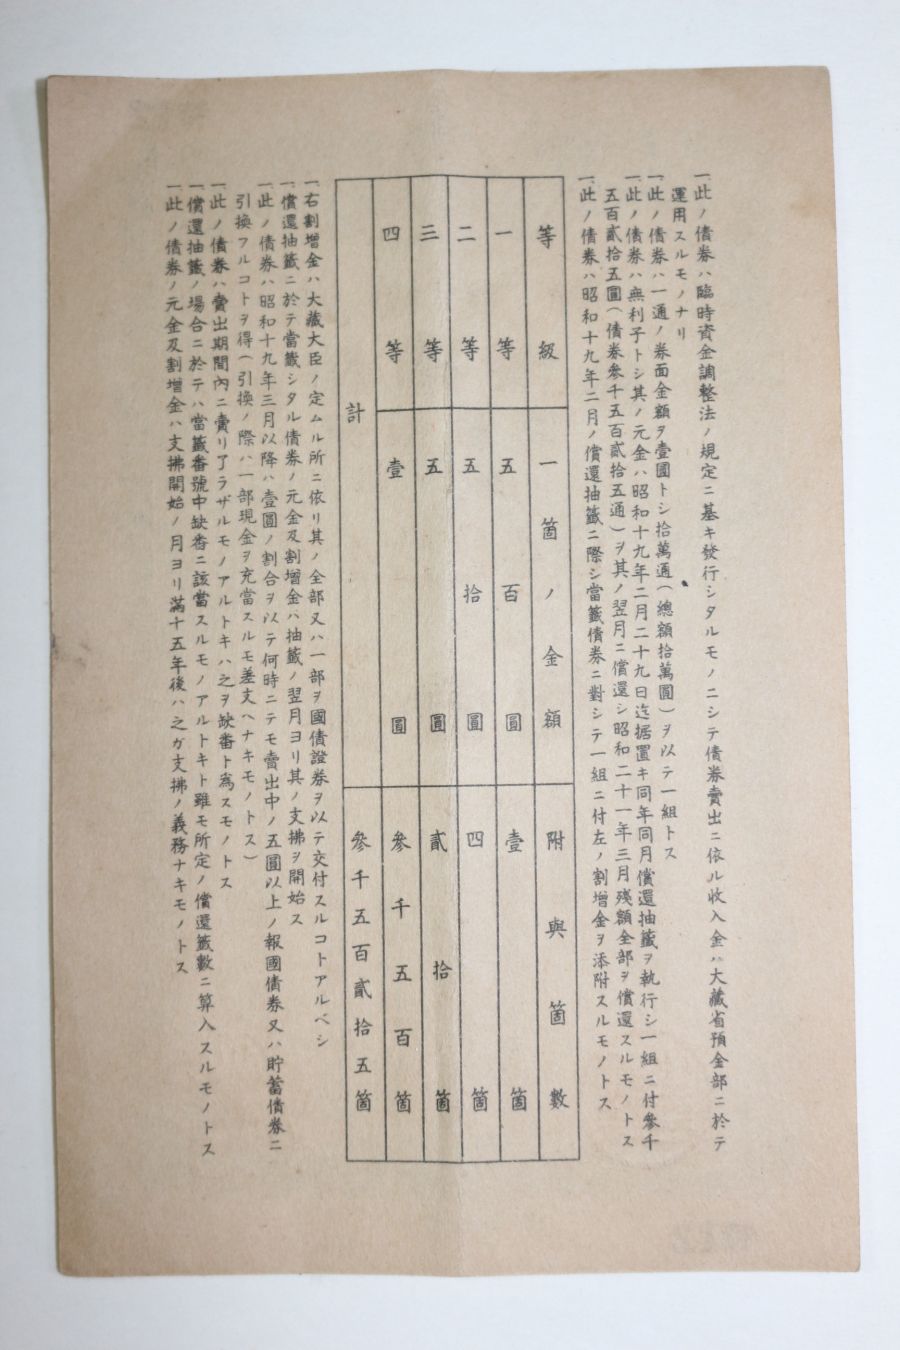 一、此ノ債券ハ臨時資金調整法ノ規定ニ基キ發行シタルモノニシテ債券賣出ニ依ル收入金ハ大藏省預金部ニ於テ
運用スルモノナリ
一、此ノ債券ハ一通ノ券面金額ヲ壹圓トシ拾萬通(總額拾萬圓)ヲ以テ一組トス
一、此ノ債券ハ無利子トシ其ノ元金ハ昭和十九年二月二十九日迄据置キ同年同月償還抽籤ヲ執行シ一組ニ付參千
五百貳拾五圓(債券參千五百貳拾五通)ヲ其ノ翌月ニ償還シ昭和二十一年三月殘額全部ヲ償還スルモノトス
一、此ノ債券ハ昭和十九年二月ノ償還抽籤ニ際シ當籤債券ニ對シテ一組ニ付左ノ割增金ヲ添附スルモノトス
等級 一箇ノ金額 附與箇數
一等 五百圓 壹箇
二等 五拾圓 四箇
三等 五圓 貳拾箇
四等 壹圓 參千五百箇
計 參千五百貳拾五箇
一、右割增金ハ大藏大臣ノ定ムル所ニ依リ其ノ全部又ハ一部ヲ國債證券ヲ以テ交付スルコトアルベシ
一、償還抽籤ニ於テ當籤シタル債券ノ元金及割增金ハ抽籤ノ翌月ヨリ其ノ支拂ヲ開始ス
一、此ノ債券ハ昭和十九年三月以降ハ壹圓ノ割合ヲ以テ何時ニテモ賣出中ノ五圓以上ノ報國債券又ハ貯蓄債券ニ
引換フルコトヲ得(引換ノ際ハ一部現金ヲ充當スルモ差支ヘナキモノトス)
一、此ノ債券ハ賣出期間內ニ賣リ了ラザルモノアルトキハ之ヲ缺番ト爲スモノトス
一、償還抽籤ノ場合ニ於テハ當籤番號中缺番ニ該當スルモノアルトキト雖モ所定ノ償還籤數ニ算入スルモノトス
一、此ノ債券ノ元金及割增金ハ支拂開始ノ月ヨリ滿十五年後ハ之ガ支拂ノ義務ナキモノトス